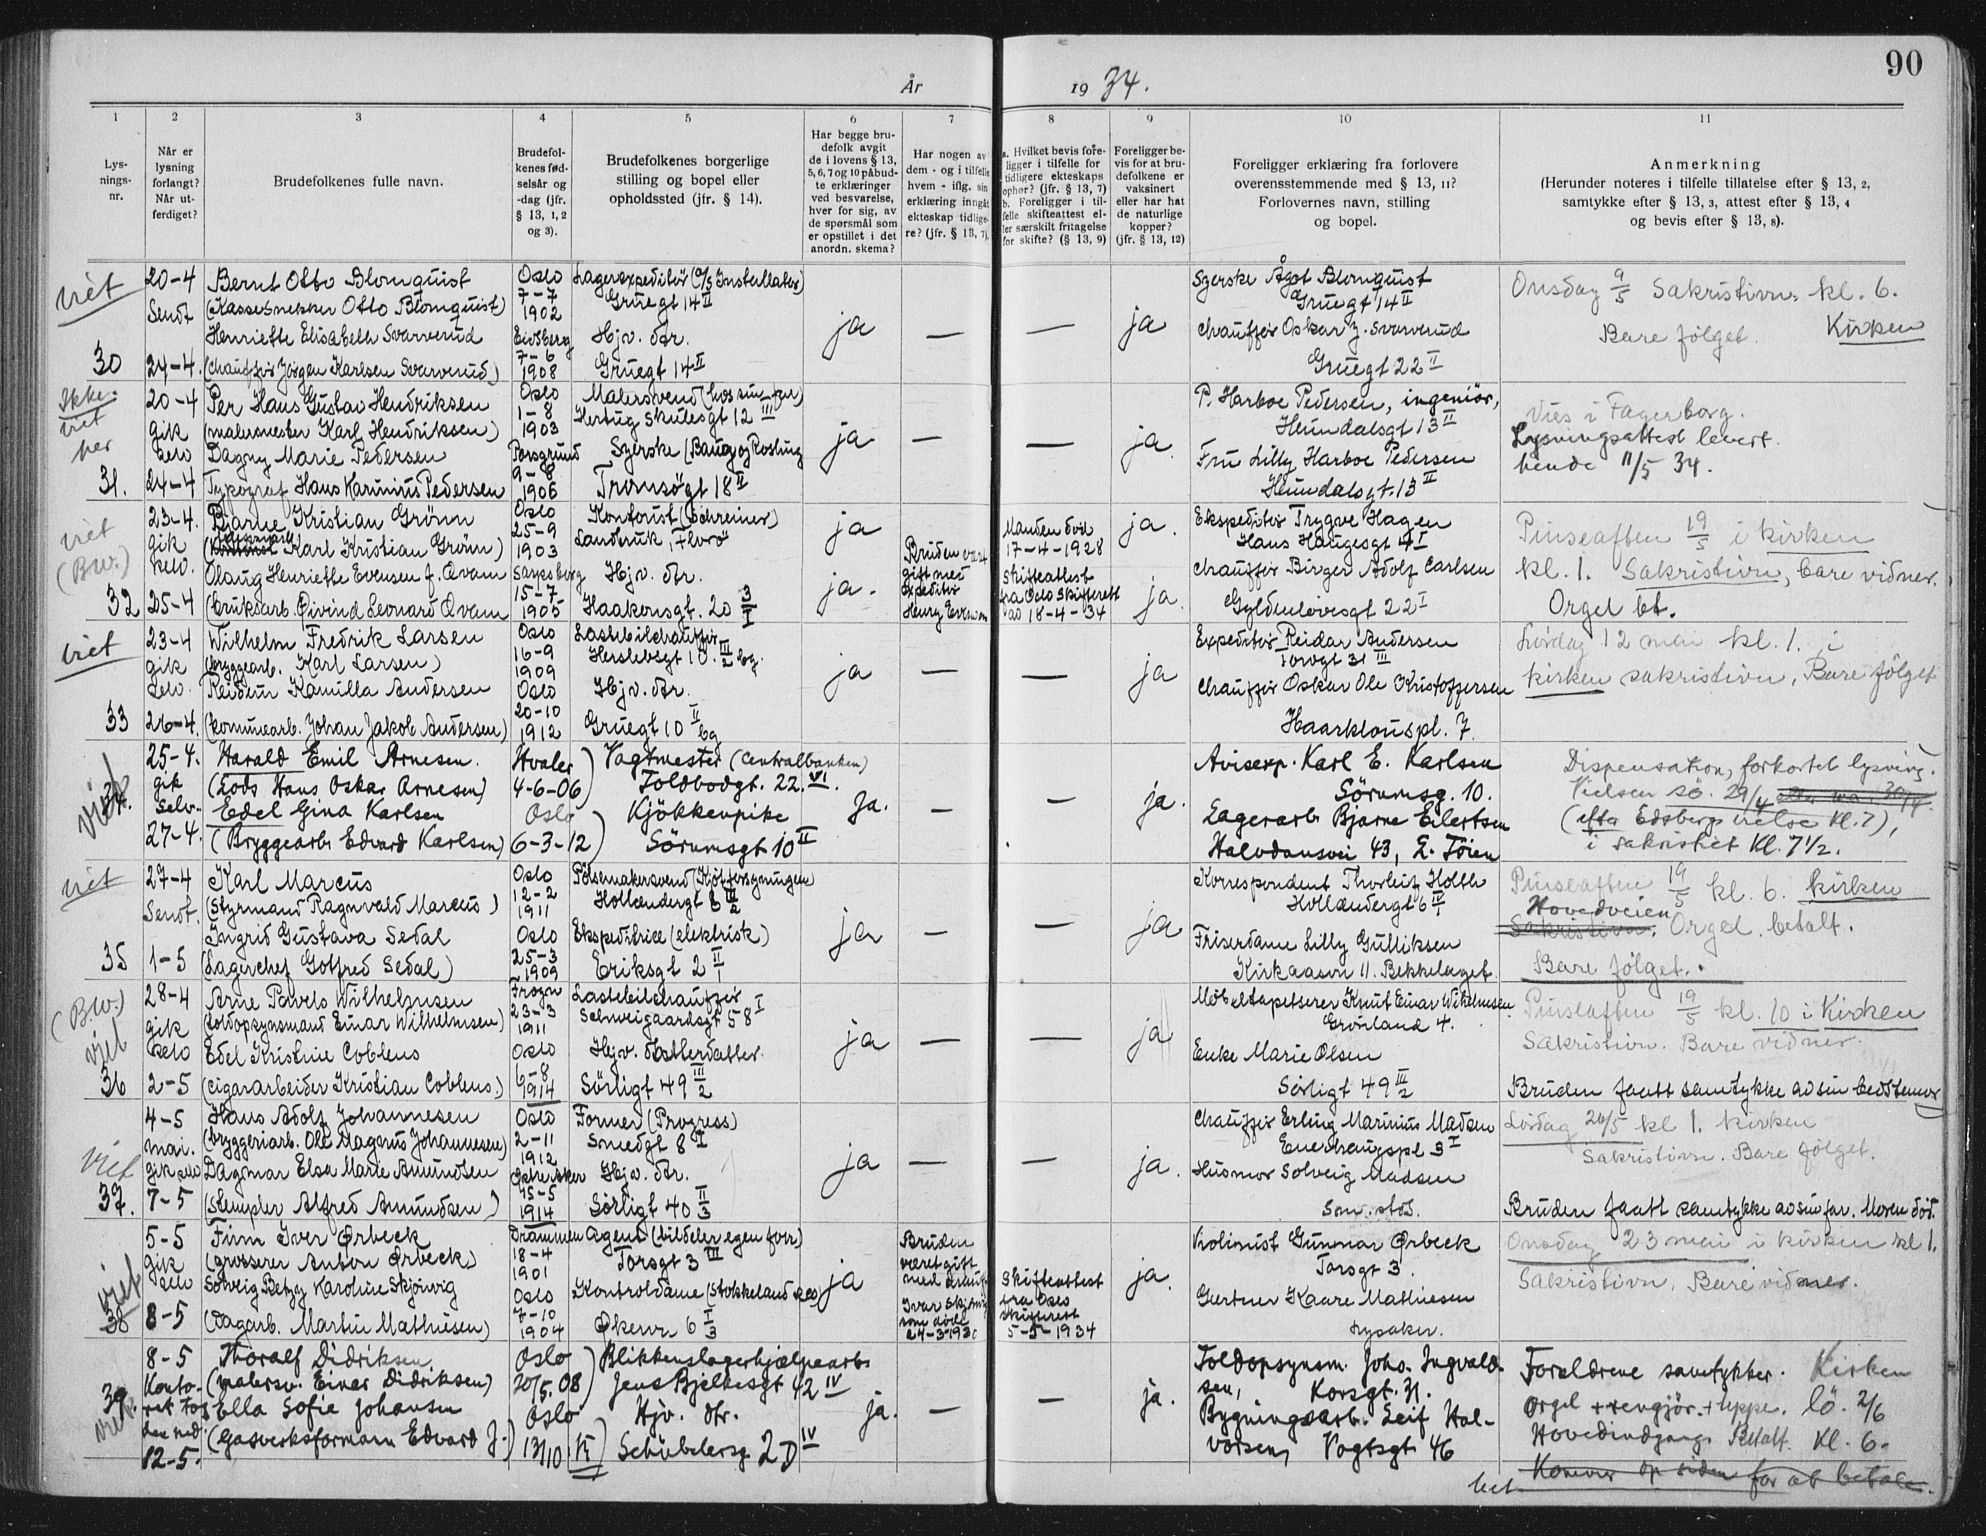 90
År 1934.
1 2 3 4 5 6 7 8 9 10 11
Lysnings-nr.
Når er lysning forlangt? Når utferdiget?
Brudefolkenes fulle navn.
Brudefolkenes fødselsår og -dag (jfr. § 13, 1, 2 og 3).
Brudefolkenes borgerlige stilling og bopel eller opholdssted (jfr. § 14).
Har begge brudefolk avgit de i lovens § 13, 5, 6, 7 og 10 påbudte erklæringer ved besvarelse, hver for sig, av de spørsmål som er opstillet i det anordn. skema?
Har nogen av dem - og i tilfelle hvem - iflg. sin erklæring inngåt ekteskap tidligere? (jfr. § 13, 7).
a. Hvilket bevis foreligger i tilfelle for tidligere ekteskaps ophør? (jfr. § 13, 7)
b. Foreligger i tilfelle skifteattest eller særskilt fritagelse for skifte? (§ 13, 9)
Foreligger bevis for at brudefolkene er vaksinert eller har hat de naturlige kopper? (jfr. § 13, 12)
Foreligger erklæring fra forlovere overensstemmende med § 13, 11? Forlovernes navn, stilling og bopel.
Anmerkning
(Herunder noteres i tilfelle tillatelse efter § 13, 2, samtykke efter § 13, 3, attest efter § 13, 4 og bevis efter § 13, 8).
viet
30
20-4
Sendt
24-4.
Bernt Otto Blomquist
(Kassesnekker Otto Blomquist)
Henriette Elisabeth Svarverud
(Chauffør Jørgen Karlsen Svarverud)
Oslo
7-7
1902
Eidsberg
7-6
1908
Lagerexpeditør (A/S Installator)
Gruegt 14 II
Hjv. dtr.
Gruegt 14 II
ja
—
—
ja
Syerske Ågot Blomquist
Gruegt 14 II
Chauffør Oskar J. Svarverud
Gruegt 22 II
Onsdag 9/5 Sakristivn. kl. 6.
Bare følget. Kirken
Ikke viet her
31.
20-4
gik
selv
24-4
Per Hans Gustav Hendriksen
(malermester Karl Hendriksen)
Dagny Marie Pedersen
Typograf Hans Karinius Pedersen
Oslo
1-8
1903
Porsgrund
9-8
1906
Malersvend (hos sin far)
Hertug Skulesgt 12 III
Syerske (Baug og Rosling
Tromsøgt 18 II
ja
—
—
ja.
P. Harboe Pedersen, ingeniør,
Heimdalsgt 13 II
Fru Lilly Harboe Pedersen
Heimdalsgt. 13 II
Vies i Fagerborg.
Lysningsattest levert
bende 11/5 34.
viet
(B.W.)
32
23-4.
gik
selv.
25-4
Bjarne Kristian Grønn
Karl Kristian Grønn)
Olaug Henriette Evensen f. Qvam
(bruksarb. Øivind Leonard Qvam
Oslo
25-9
1903
Sarpsborg
15-7
1905
Kontorist (Schreiner)
Landbruk, Florø
Hjv. dtr.
Haakonsgt. 20 3/I
ja
ja.
Bruden vært
gift med
expeditør
Henry Evensen
Manden død
17-4-1928
Skifteattest
fra Oslo Skifterett
ad 18-4-34
ja.
ja
Ekspeditør Trygve Hagen
Hans Haugesgt 4 I
Chauffør Birger Adolf Carlsen
Gyldenløvesgt 22 I
Pinseaften 19/5 i kirken
kl. 1. Sakristivn, bare vidner.
Orgel bt.
viet
33
23-4
gik
selv.
26-4.
Wilhelm Fredrik Larsen
(bryggearb. Karl Larsen)
Reidun Kamilla Andersen
(kommunearb. Johan Jakob Andersen)
Oslo
16-9
1909
Oslo
20-10
1912
Lastebilchauffør
Herslebsgt 10. III/2 bg.
Hjv. dtr.
Gruegt 10 II bg
ja
—
—
ja
Expeditør Reidar Andersen
Torvgt 31 III
Chauffør Oskar Ole Kristoffersen
Haarklouspl. 7.
Lørdag 12 mai kl. 1. i
kirken sakristivn, Bare følget
viet
34.
25-4.
gik
selv.
27-4.
Harald Emil Arnesen.
(Lods Hans Oskar Arnesen)
Edel Gina Karlsen
(Bryggearb. Edvard Karlsen)
Hvaler
4-6-06
Oslo
6-3-12
Vagtmester (Centralbanken)
Toldbodgt. 22. VI.
Kjøkkenpike
Sörumsgt 10 II
Ja.
—
—
ja.
Aviserp. Karl E. Karlsen
Sörumsg. 10.
Lagerarb. Bjarne Eilertsen
Halvdansvei 43, E. Töien
Dispensation, forkortet lysning.
Vielsen sö. 29/4
(efter Edsberg vielse kl. 7),
i sakristiet Kl. 7 1/2.
viet
35
27-4
Sendt.
1-5
Karl Marcus
(Styrmand Ragnvald Marcus)
Ingrid Gustava Sedal
(Lagerchef Gotfred Sedal)
Oslo
12-2
1911
Oslo
25-3
1909
Pølsemakersvend (Kjøtforsyningen
Hollendergt 8 IV/2
Ekspeditrice (elektrisk)
Eriksgt 2 II/1
ja
—
—
ja
Korrespondent Thorleif Holth
Hollændergt 6 IV/1
Friserdame Lilly Gulliksen
Kirkaasvn 11. Bekkelaget
Pinseaften 19/5 kl. 6. kirken
Hovedveien
Sakristivn. Orgel. betalt.
Bare følget.
(B.W.)
viet
36
28-4
gik
selv
2-5
Arne Pavels Wilhelmsen
(toldopsynsmand Einar Wilhelmsen)
Edel Kristine Coblens
(cigararbeider Kristian Coblens.)
Frogn
23-3
1911
Oslo
6-8
1914
Lastebilchauffør
Schweigaardsgt 58 I
Hjv. datterdatter.
Sørligt 49 III/2
ja
—
—
ja
Møbeltapetserer Knut Einar Wilhelmsen
Grønland 4.
Enke Marie Olsen
Sørligt 49 III/2
Pinseaften 19/5 kl. 10 i Kirken
Sakristivn. Bare vidner.
Bruden faatt samtykke av sin bedstemor
viet
37.
4-5
mai.
gik selv
7-5
Hans Adolf Johannesen
(bryggeriarb. Ole Magnus Johannesen)
Dagmar Elsa Marie Amundsen
(stempler Alfred Amundsen)
Oslo
2-11
1912
Østre Aker
15-5
1914
Former (Progress)
Smedgt 8 I
Hjv. dtr.
Sørligt 40 II/3
ja
—
—
ja.
Chauffør Erling Marinius Madsen
Enerhaugspl 3 I
Husmor Solveig Madsen
Sm. sted.
Lørdag 26/5 kl 1. kirken
Sakristivn. Bare følget.
Bruden faatt samtykke av sin far. Moren død.
viet
38
5-5
gik
selv
8-5
Finn Iver Ørbeck
(grosserer Anton Ørbeck)
Solveig Betzy Karoline Skjønvig
(Dagarb. Martin Mathiesen)
Drammen
18-4
1901
Oslo
7-10
1904
Agent (bildeler egen forr)
Torsgt 3 III
Kontroldame (Stokkeland &co)
Økernvn 6 I/3
ja
Bruden
været gift
med
Ivar Skjønvig
som døde
24-3-1930
Skifteattest
fra Oslo
skifterett
5-5-1934
ja.
Violinist Gunnar Ørbeck
Torsgt 3.
Gartner Kaare Mathiesen
Lysaker.
Onsdag 23 mai i kirken kl 1.
Sakristivn, Bare vidner.
39.
viet
8-5
Kontoret
12-5.
Thoralf Didriksen.
(malersv. Einar Didriksen)
Ella Sofie Johansen
(Gasverksformann Edvard J.)
Oslo
20/5.08
Oslo
13/10
Blikkenslagerhjælpearb.
Jens Bjelkesgt 42 IV
Hjv. dtr.
Schübelersg 2D IV
ja.
—
—
ja.
Toldopsynsm. Johs. Ingvaldsen,
Korsgt. 31.
Bygningsarb. Leif Halvorsen,
Vogtsgt 46
Foreldrene samtykker. Kirken
Orgel + rengjør. + teppe. lö. 2/6
Hovedindgang. Betalt. Kl. 6.
Kommer op siden for at betale.
bet.